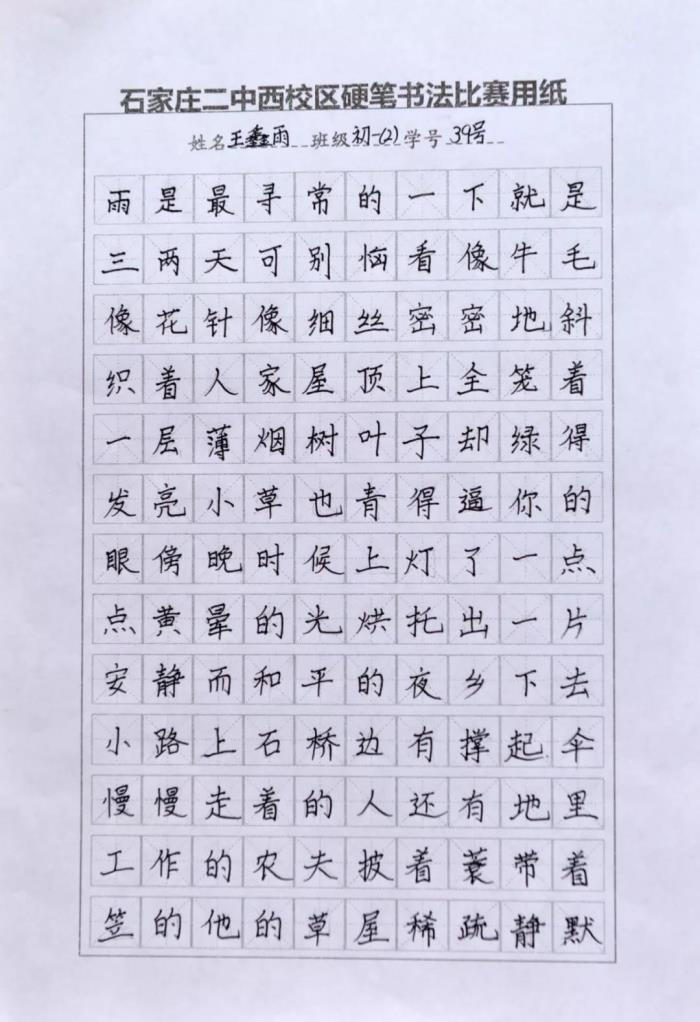 石家庄二中西校区硬笔书法比赛用纸
姓名王鑫雨 班级初一(2)学号39号
雨是最寻常的一下就是
三两天可别恼看像牛毛
像花针像细丝密密地斜
织着人家屋顶上全笼着
一层薄烟树叶子却绿得
发亮小草也青得逼你的
眼傍晚时候上灯了一点
点黄晕的光烘托出一片
安静而和平的夜乡下去
小路上石桥边有撑起伞
慢慢走着的人还有地里
工作的农夫披着蓑带着
笠的他的草屋稀疏静默